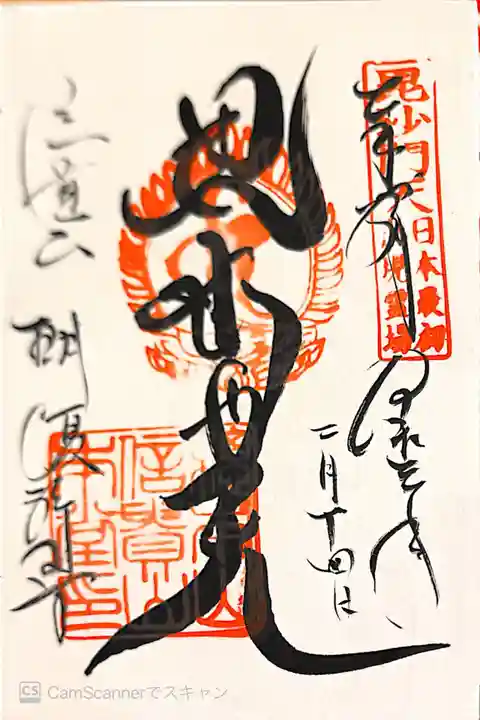 毘沙門天
日本最初
出現霊場
奉拝
二月十四日
毘沙門天
信貴山
本堂印
信貴山 朝護孫子寺
CS CamScannerでスキャン